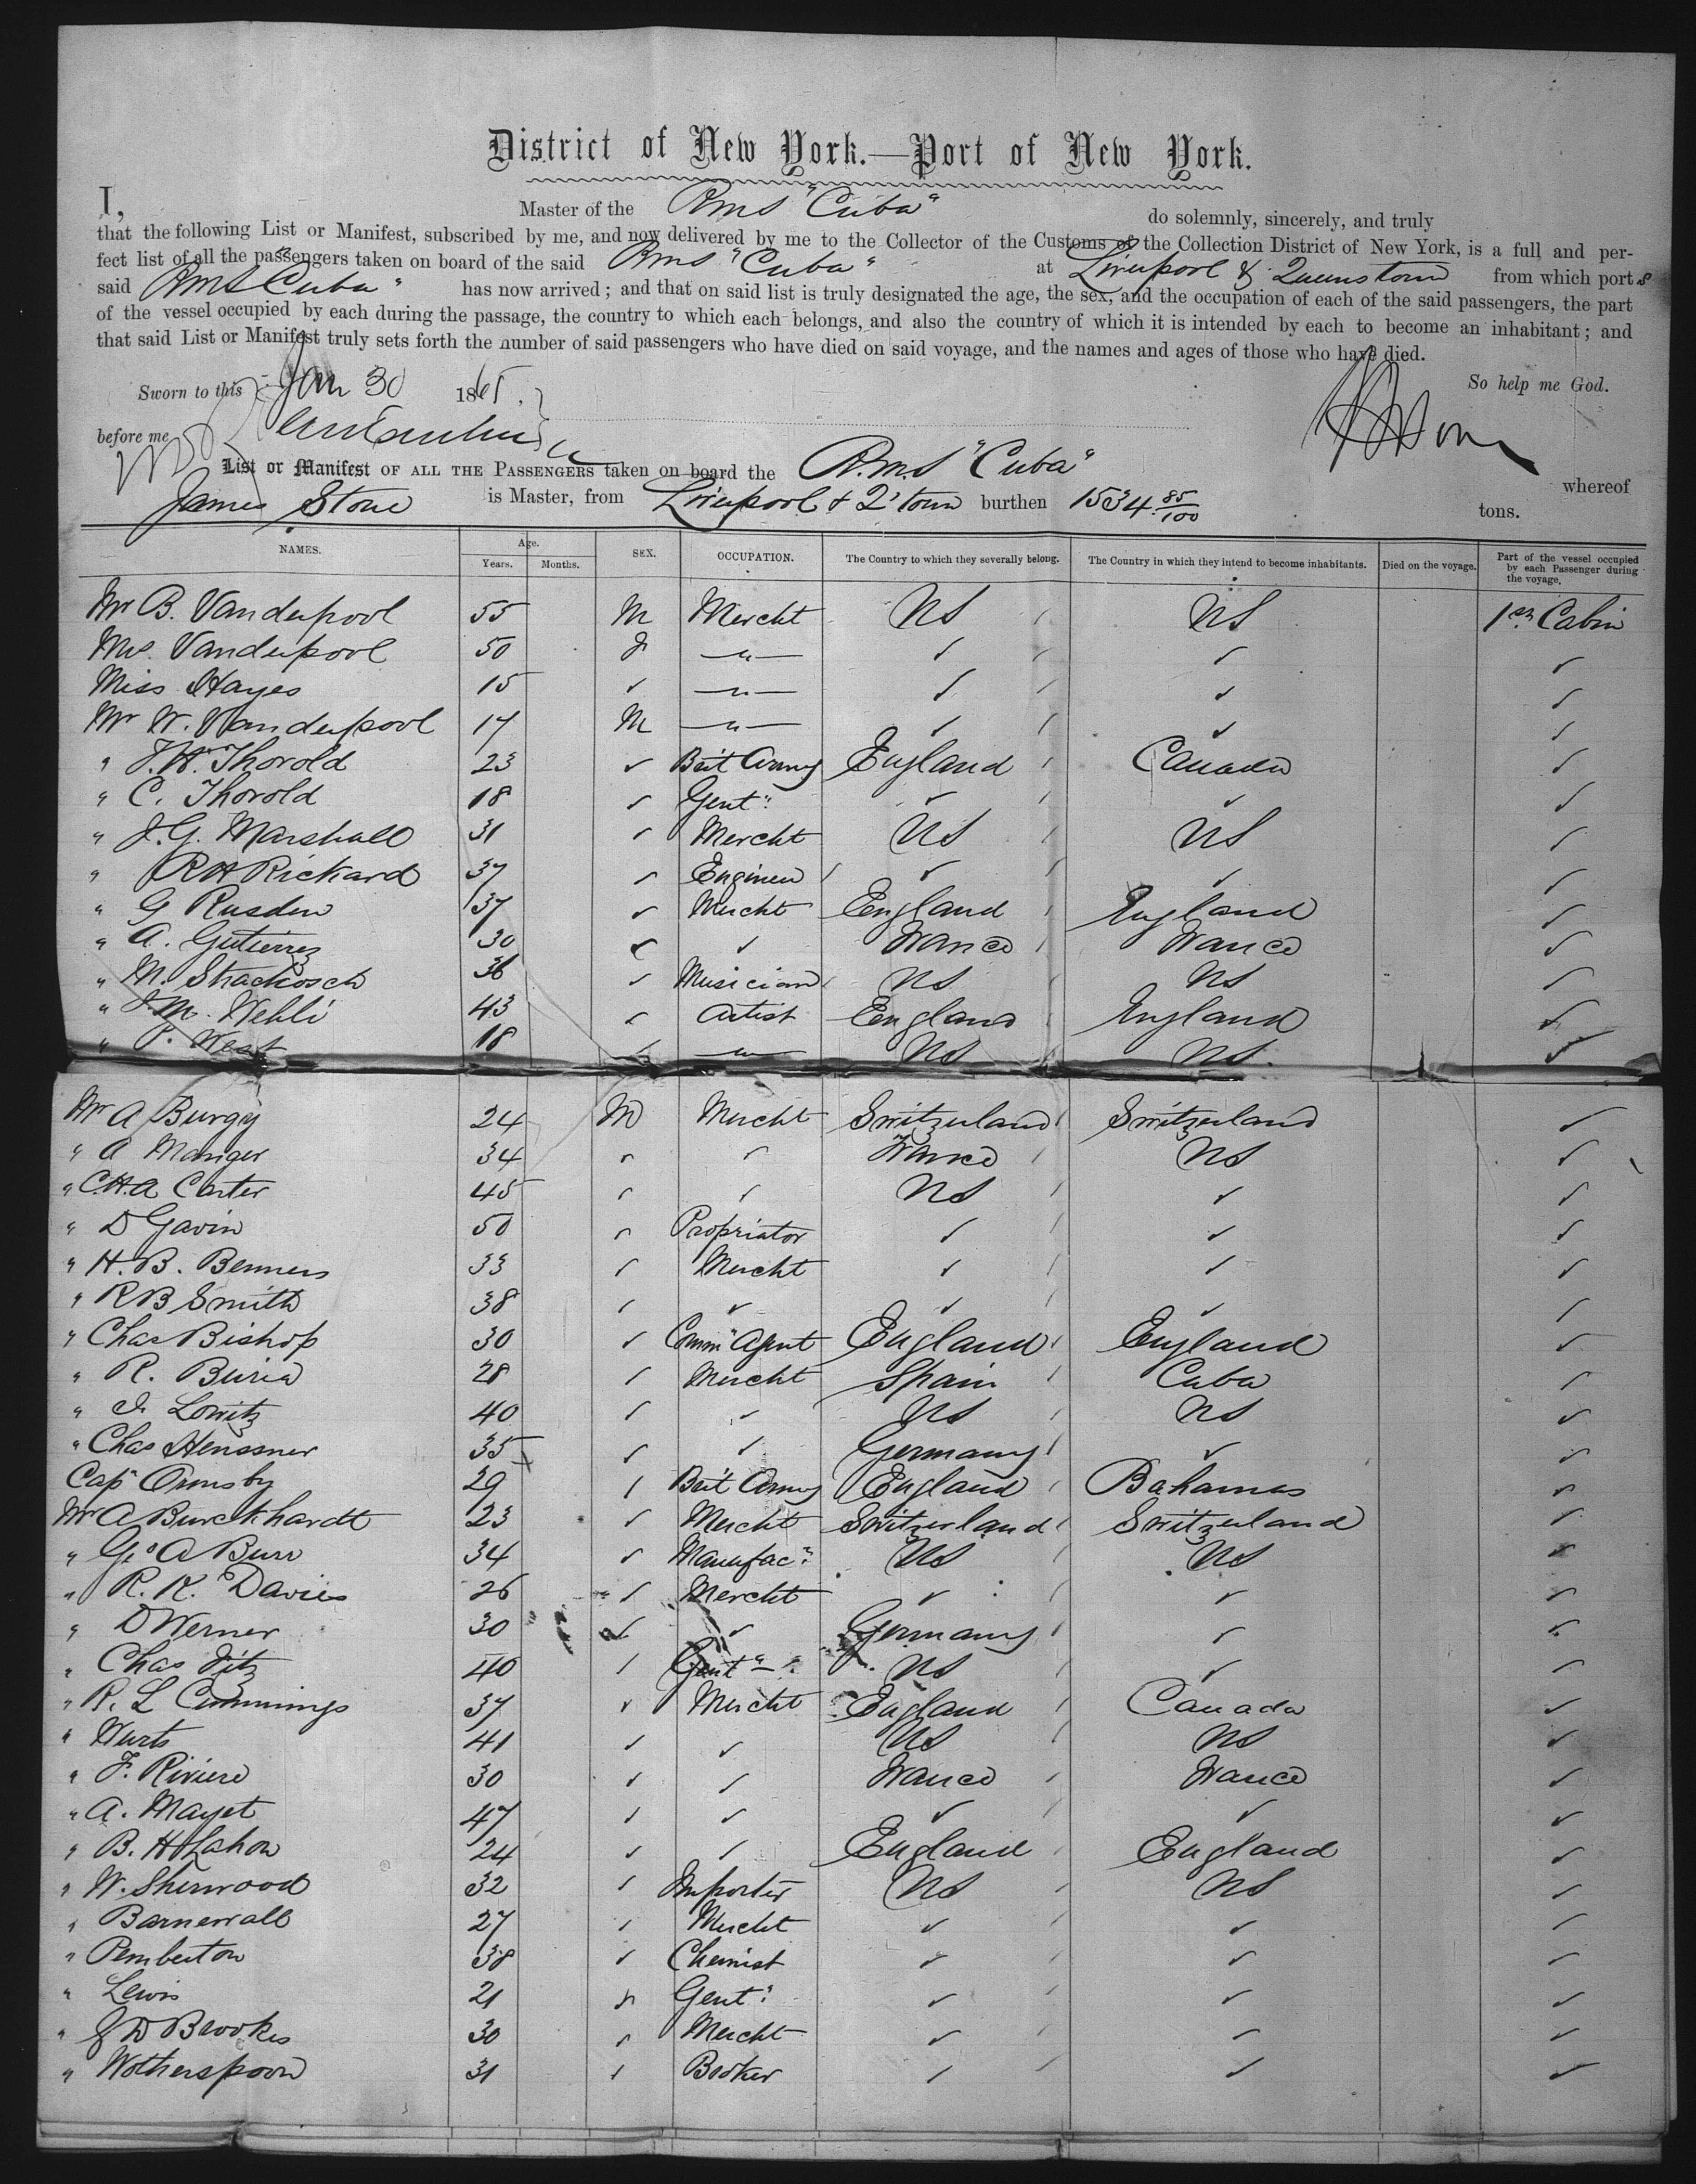 District of New York.—Port of New York.
I, Master of the RMS "Cuba" do solemnly, sincerely, and truly
that the following List or Manifest, subscribed by me, and now delivered by me to the Collector of the Customs of the Collection District of New York, is a full and per-
fect list of all the passengers taken on board of the said RMS "Cuba" at Liverpool & Queenstown from which ports
said RMS Cuba" has now arrived; and that on said list is truly designated the age, the sex, and the occupation of each of the said passengers, the part
of the vessel occupied by each during the passage, the country to which each belongs, and also the country of which it is intended by each to become an inhabitant; and
that said List or Manifest truly sets forth the number of said passengers who have died on said voyage, and the names and ages of those who have died.
Sworn to this Jan 30 1865. So help me God.
before me
List or Manifest OF ALL THE PASSENGERS taken on board the R.M.S "Cuba" whereof
James Stone is Master, from Liverpool & Q'town burthen 1534 85/100 tons.
NAMES. Age. SEX. OCCUPATION. The Country to which they severally belong. The Country in which they intend to become inhabitants. Died on the voyage. Part of the vessel occupied by each Passenger during the voyage.
Years. Months.
Mr B. Vanderpool 55 M Mercht US US 1st Cabin
Mrs. Vanderpool 50 F —"— ✓ ✓ ✓
Miss Hayes 15 ✓ —"— ✓ ✓ ✓
Mr W. Vanderpool 17 M —"— ✓ ✓ ✓
" J.H. Thorold 23 ✓ Brit Army England Canada ✓
" C. Thorold 18 ✓ Gent" ✓ ✓ ✓
" J.G. Marshall 31 ✓ Mercht US US ✓
" RH Rickard 37 ✓ Engineer ✓ ✓ ✓
" G Rusden 37 ✓ Mercht England England ✓
" A. Gutierrez 30 ✓ ✓ France France ✓
" M. Strackosch 36 ✓ Musician US US ✓
" J.M. Wehli 43 ✓ Artist England England ✓
" P. West 18 ✓ —"— US US. ✓
Mr A Burgy 24 M Mercht Switzerland Switzerland ✓
" A Manger 34 ✓ ✓ France US ✓
" C.H.A Carter 45 ✓ ✓ US ✓ ✓
" D Gavin 50 ✓ Propriator ✓ ✓ ✓
" H.B. Benners 33 ✓ Mercht ✓ ✓ ✓
" RB Smith 38 ✓ ✓ ✓ ✓ ✓
" Chas Bishop 30 ✓ Comm" Agent England England ✓
" R. Buria 28 ✓ Mercht Spain Cuba ✓
" I. Lowitz 40 ✓ ✓ US US ✓
" Chas Henssner 35 ✓ ✓ Germany ✓ ✓
Capt Ormsby 29 ✓ Brit Army England Bahamas ✓
Mr A Burckhardt 23 ✓ Mercht Switzerland Switzerland ✓
" Geo A Burr 34 ✓ Manufac" US US ✓
" R.K. Davies 26 ✓ Mercht ✓ ✓ ✓
" D Werner 30 ✓ ✓ Germany ✓ ✓
" Chas Fitz 40 ✓ Gent" US ✓ ✓
" R. L Cummings 37 ✓ Mercht England Canada ✓
" Wurts 41 ✓ ✓ US US ✓
" F. Riviere 30 ✓ ✓ France France ✓
" A. Mayet 47 ✓ ✓ ✓ ✓ ✓
" B. H Lahow 24 ✓ ✓ England England ✓
" W. Sherwood 32 ✓ Importer US US ✓
" Barnewall 27 ✓ Mercht ✓ ✓ ✓
" Pemberton 38 ✓ Chemist ✓ ✓ ✓
" Lewis 21 ✓ Gent" ✓ ✓ ✓
" J D Brookes 30 ✓ Mercht ✓ ✓ ✓
" Wotherspoon 31 ✓ Broker ✓ ✓ ✓